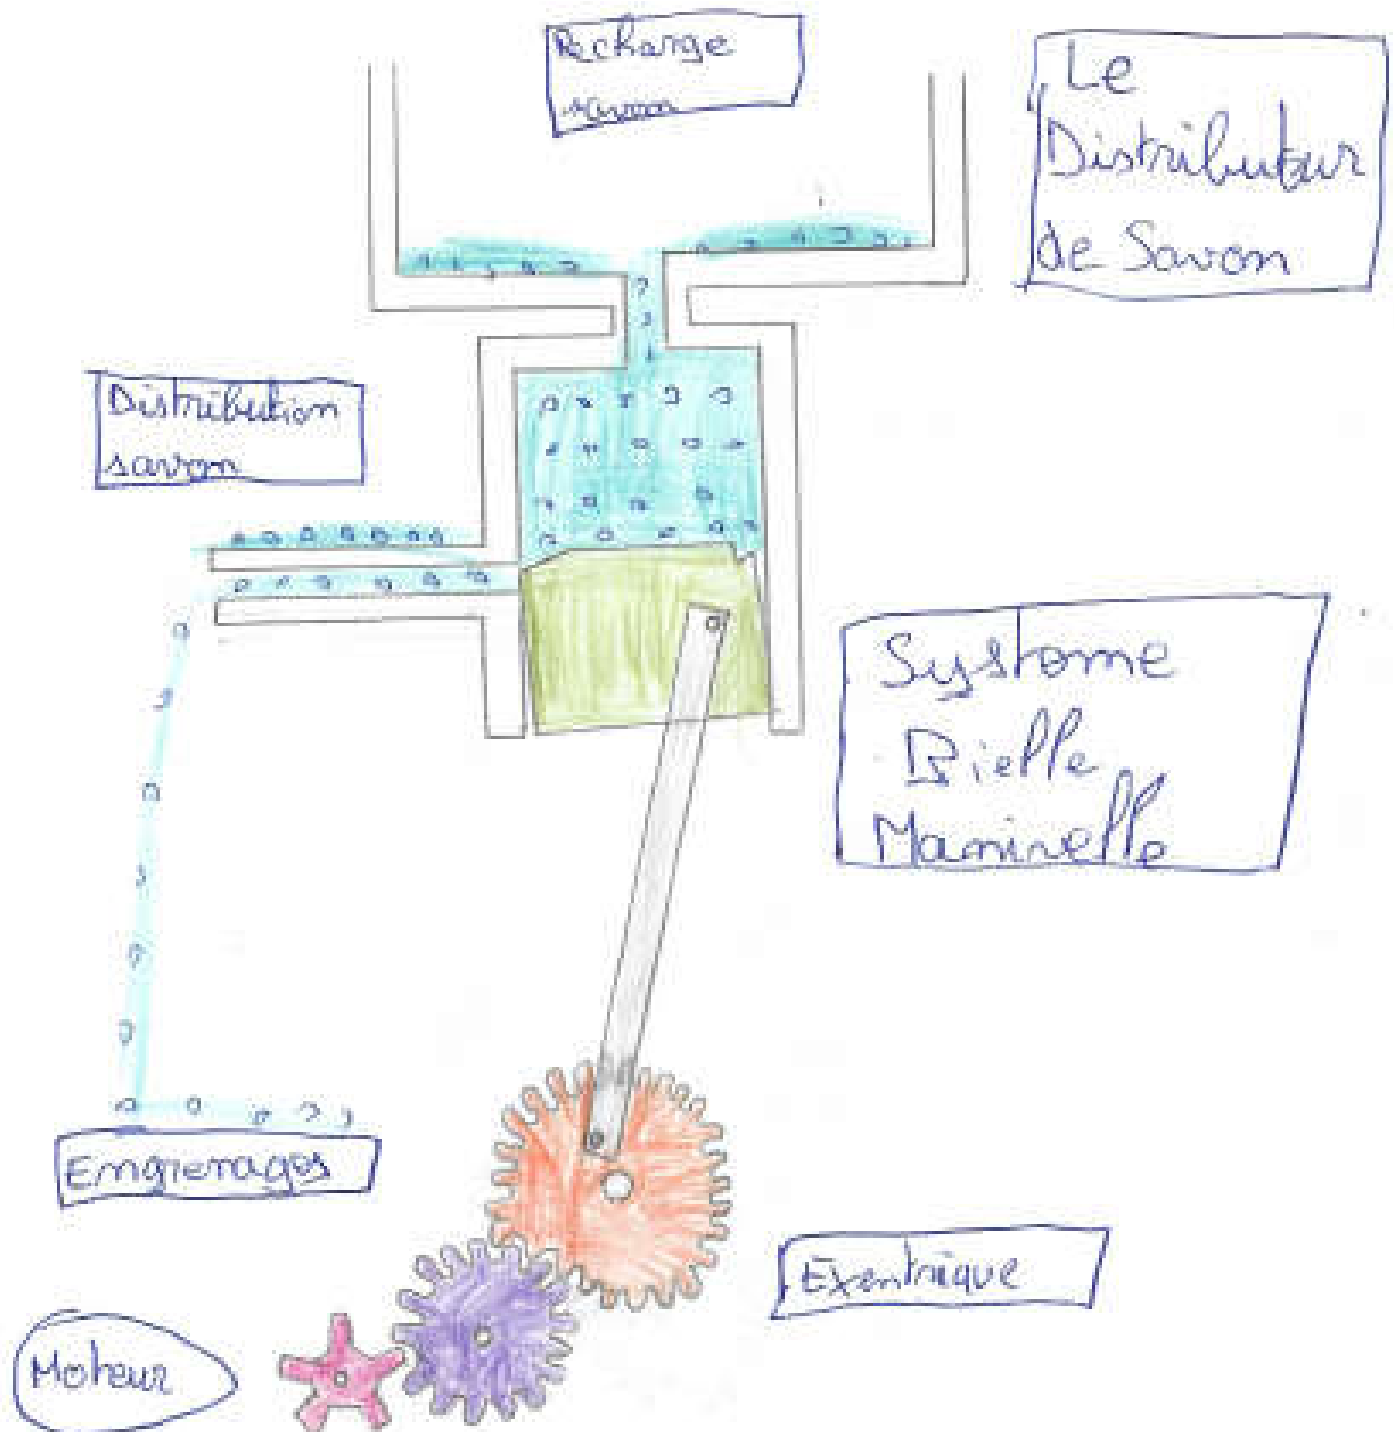 Recharge
savon
Le
Distributeur
de Savon
Distribution
savon
Système
Bielle
Manivelle
Engrenages
Exentrique
Moteur